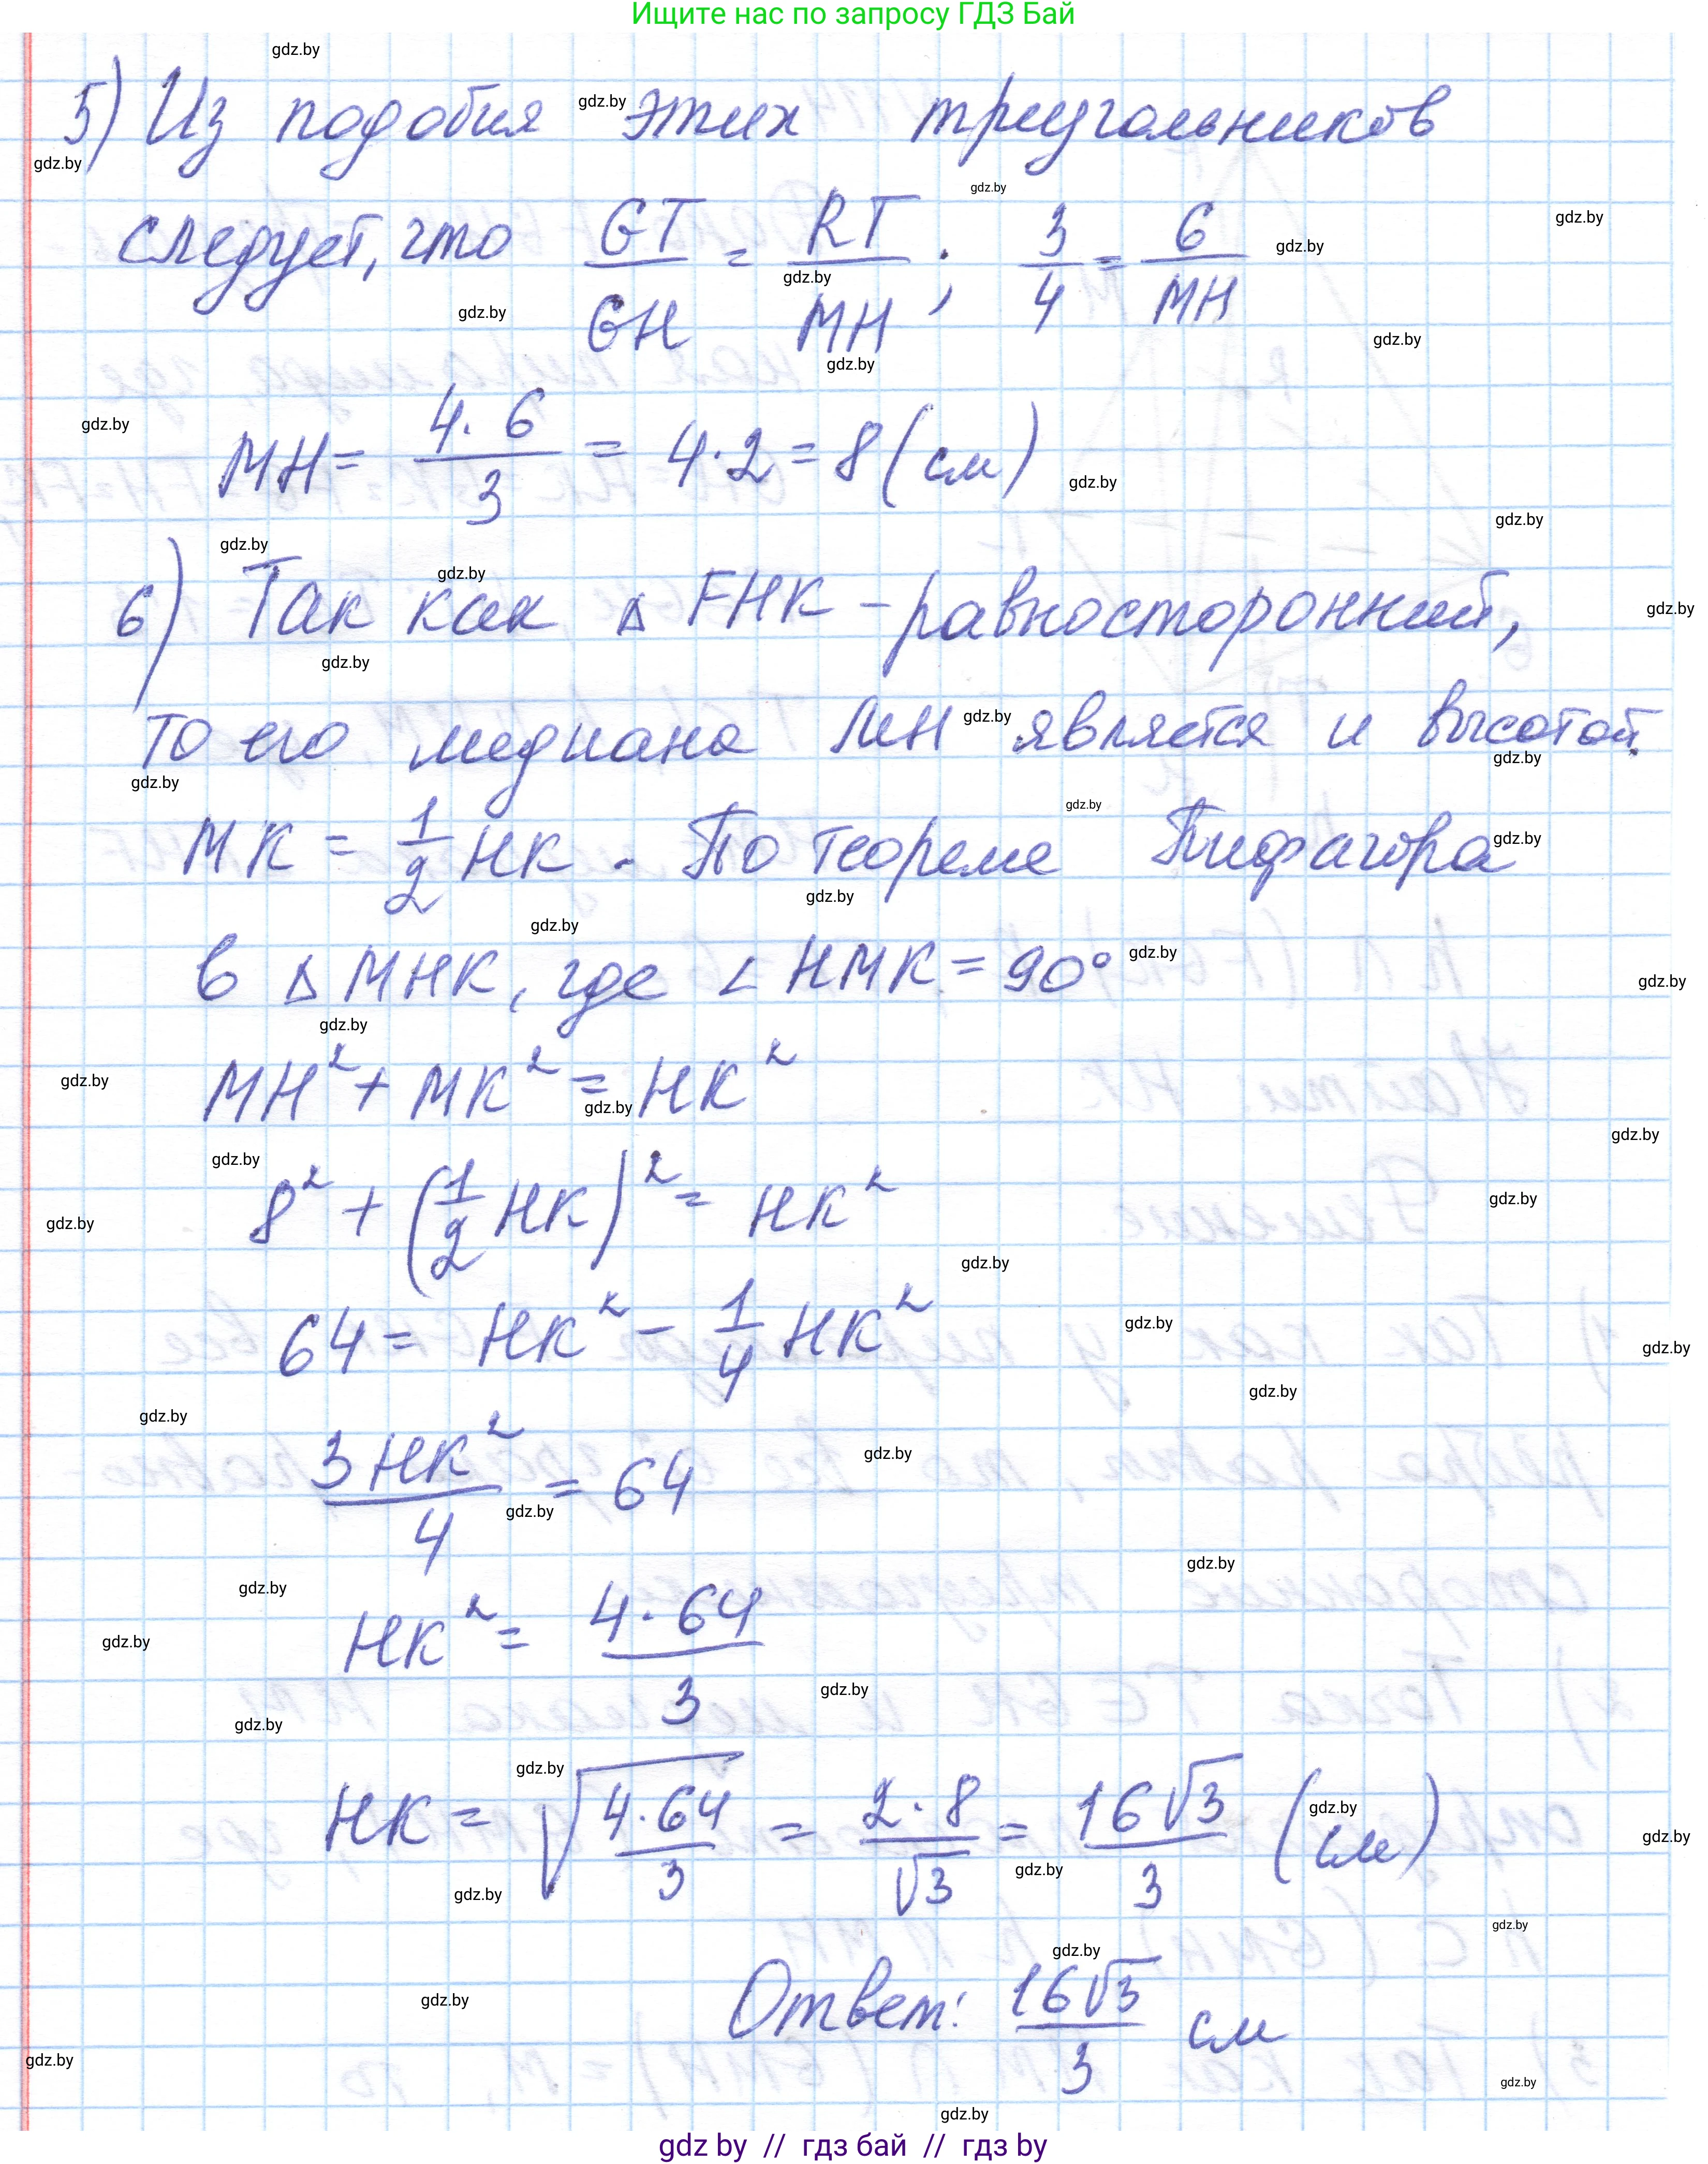 Ищите нас по запросу ГДЗ Бай
5) Из подобия этих треугольников
следует, что GT/GH = RT/MH; 3/4 = 6/MH
MH = 4·6/3 = 4·2 = 8 (см)
6) Так как △ FHK – равносторонний,
то его медиана MH является и высотой.
MK = 1/2 HK. По теореме Пифагора
в △ MHK, где ∠ HMK = 90°
MH² + MK² = HK²
8² + (1/2 HK)² = HK²
64 = HK² – 1/4 HK²
3HK²/4 = 64
HK² = 4·64/3
HK = √(4·64/3) = 2·8/√3 = 16√3/3 (см)
Ответ: 16√3/3 см
gdz by // гдз бай // гдз by